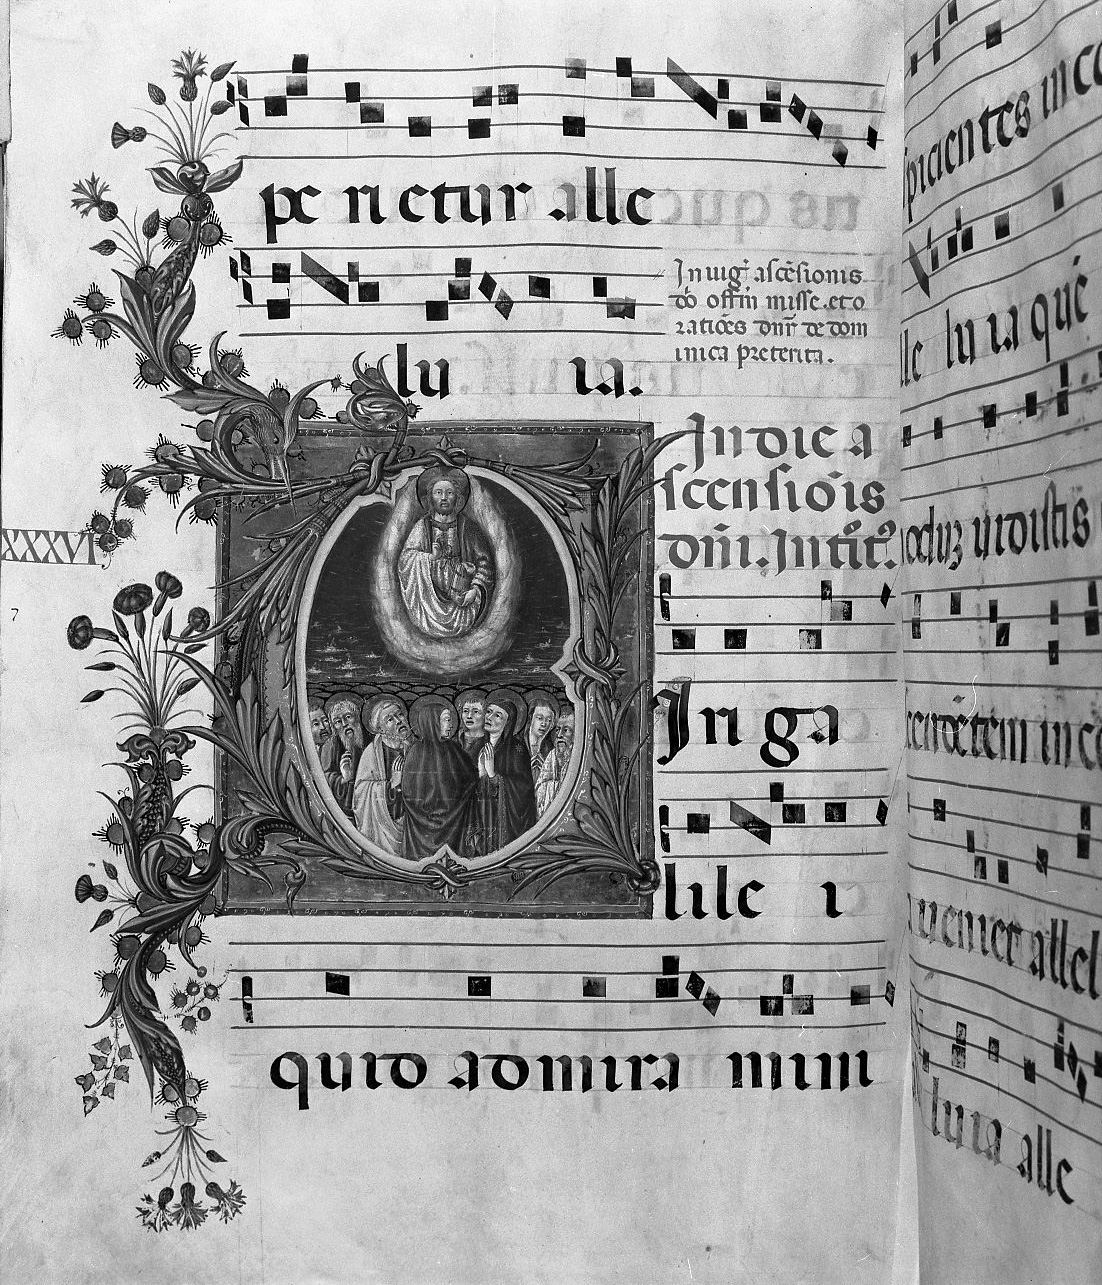 pe ri etur alle
In uig̅ ascẽsionis
dõ offm̃ misse et o
rationes dnr̃ de dom
inica preterita.
lu ia.
In die a
scensiois
dñi. Intit̃.
XXXVI
In ga
lile i
quid admira mini
spicientes in ce
le lu ia que
uidistis
cendẽtem in ce
ueniet allel
lu ia alle
7